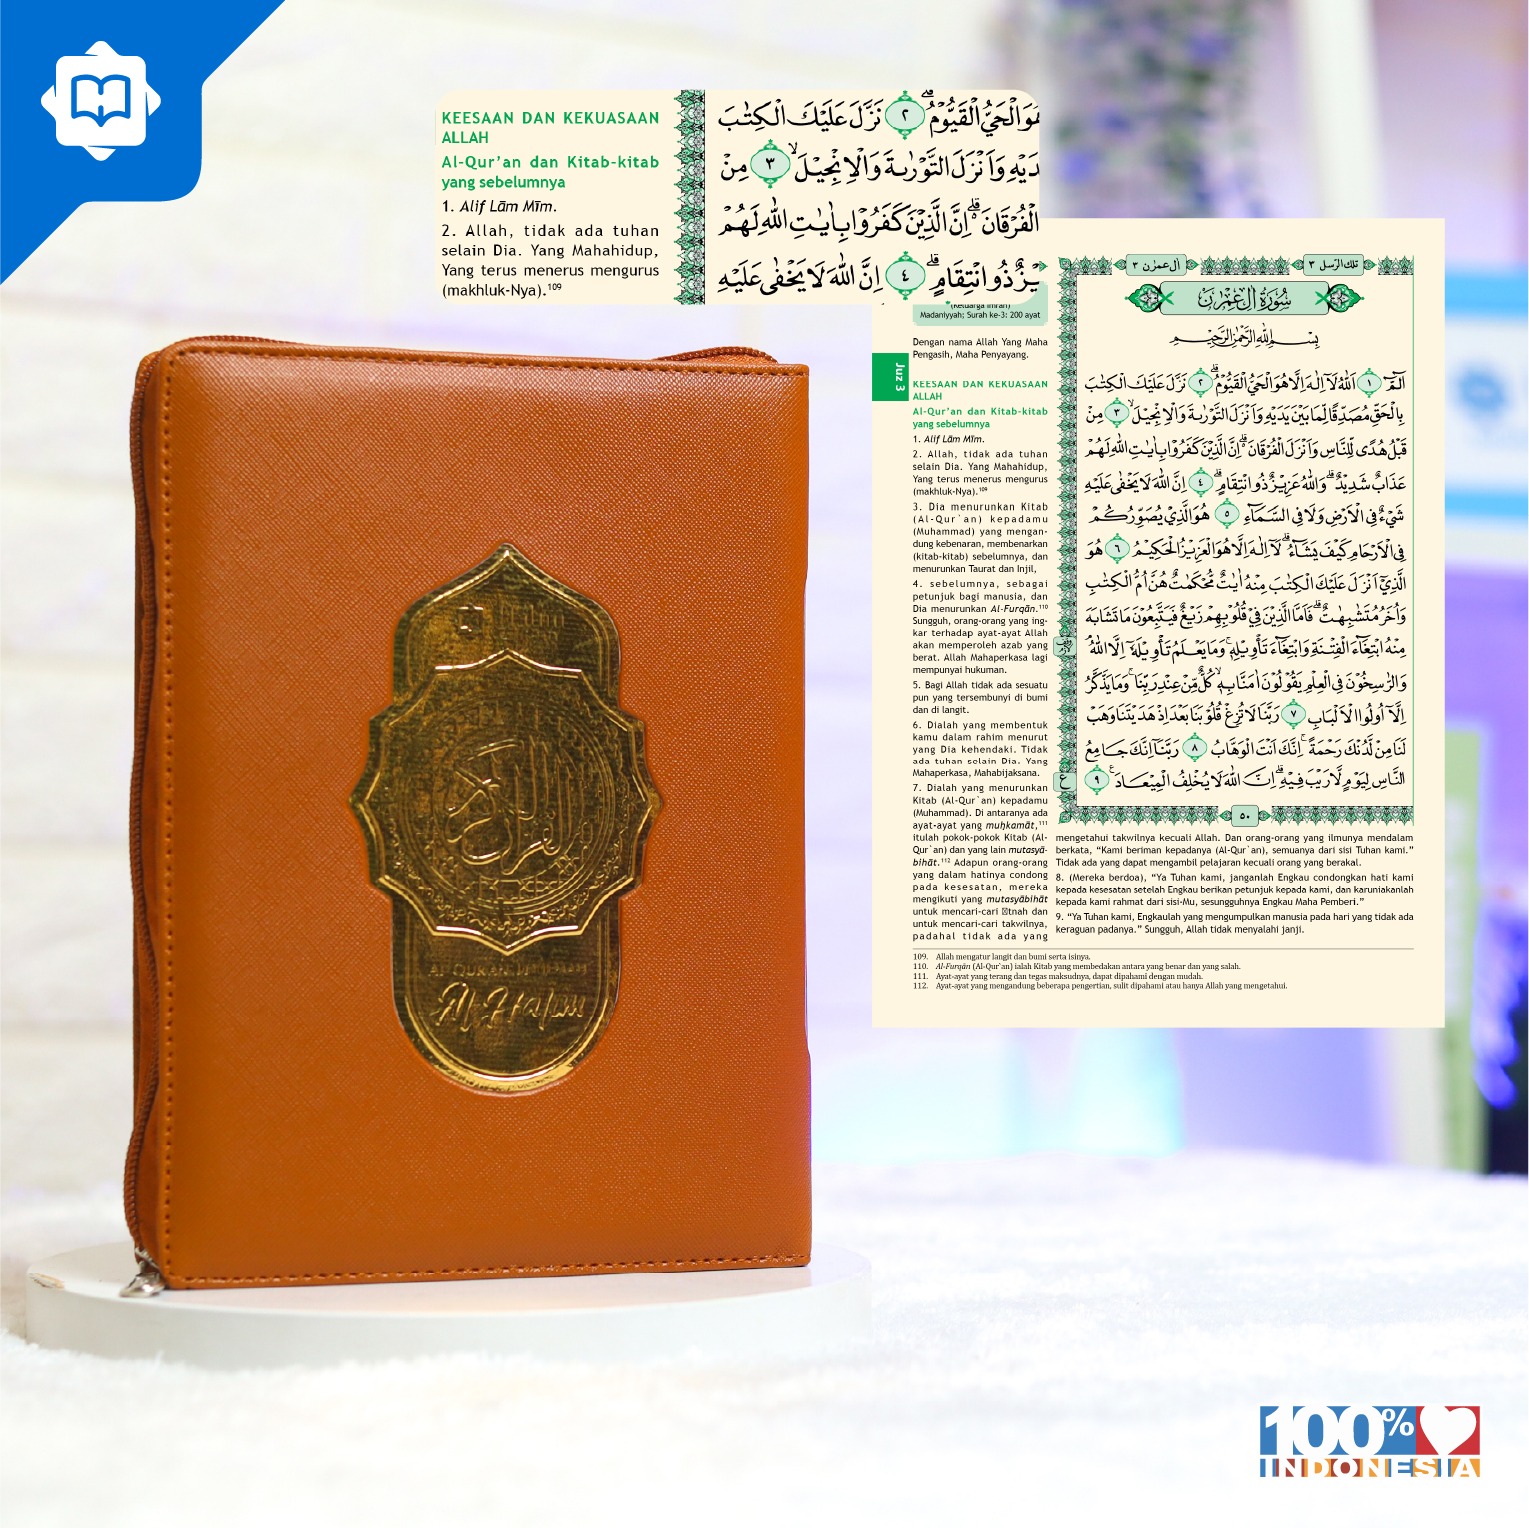 KEESAAN DAN KEKUASAAN
ALLAH
Al-Qur’an dan Kitab-kitab
yang sebelumnya
1. Alif Lām Mīm.
2. Allah, tidak ada tuhan
selain Dia. Yang Mahahidup,
Yang terus menerus mengurus
(makhluk-Nya).109
هُوَ الْحَيُّ الْقَيُّوْمُۗ ٢ نَزَّلَ عَلَيْكَ الْكِتٰبَ
يَدَيْهِ وَاَنْزَلَ التَّوْرٰىةَ وَالْاِنْجِيْلَۙ ٣ مِنْ
الْفُرْقَانَۗ اِنَّ الَّذِيْنَ كَفَرُوْا بِاٰيٰتِ اللّٰهِ لَهُمْ
يْزٌ ذُو انْتِقَامٍۗ ٤ اِنَّ اللّٰهَ لَا يَخْفٰى عَلَيْهِ
(Keluarga Imran)
Madaniyyah; Surah ke-3: 200 ayat
Dengan nama Allah Yang Maha
Pengasih, Maha Penyayang.
Juz 3
KEESAAN DAN KEKUASAAN
ALLAH
Al-Qur’an dan Kitab-kitab
yang sebelumnya
1. Alif Lām Mīm.
2. Allah, tidak ada tuhan
selain Dia. Yang Mahahidup,
Yang terus menerus mengurus
(makhluk-Nya).109
3. Dia menurunkan Kitab
(Al-Qur`an) kepadamu
(Muhammad) yang mengan-
dung kebenaran, membenarkan
(kitab-kitab) sebelumnya, dan
menurunkan Taurat dan Injil,
4. sebelumnya, sebagai
petunjuk bagi manusia, dan
Dia menurunkan Al-Furqān.110
Sungguh, orang-orang yang ing-
kar terhadap ayat-ayat Allah
akan memperoleh azab yang
berat. Allah Mahaperkasa lagi
mempunyai hukuman.
5. Bagi Allah tidak ada sesuatu
pun yang tersembunyi di bumi
dan di langit.
6. Dialah yang membentuk
kamu dalam rahim menurut
yang Dia kehendaki. Tidak
ada tuhan selain Dia. Yang
Mahaperkasa, Mahabijaksana.
7. Dialah yang menurunkan
Kitab (Al-Qur`an) kepadamu
(Muhammad). Di antaranya ada
ayat-ayat yang muḥkamāt,111
itulah pokok-pokok Kitab (Al-
Qur`an) dan yang lain mutasyā-
bihāt.112 Adapun orang-orang
yang dalam hatinya condong
pada kesesatan, mereka
mengikuti yang mutasyābihāt
untuk mencari-cari tnah dan
untuk mencari-cari takwilnya,
padahal tidak ada yang
اٰل عمرٰن ٣
تلك الرّسل ٣
سُوْرَةُ اٰلِ عِمْرٰنَ
بِسْمِ اللّٰهِ الرَّحْمٰنِ الرَّحِيْمِ
الۤمّۤ ١ اَللّٰهُ لَآ اِلٰهَ اِلَّا هُوَ الْحَيُّ الْقَيُّوْمُۗ ٢ نَزَّلَ عَلَيْكَ الْكِتٰبَ
بِالْحَقِّ مُصَدِّقًا لِّمَا بَيْنَ يَدَيْهِ وَاَنْزَلَ التَّوْرٰىةَ وَالْاِنْجِيْلَۙ ٣ مِنْ
قَبْلُ هُدًى لِّلنَّاسِ وَاَنْزَلَ الْفُرْقَانَۗ اِنَّ الَّذِيْنَ كَفَرُوْا بِاٰيٰتِ اللّٰهِ لَهُمْ
عَذَابٌ شَدِيْدٌۗ وَاللّٰهُ عَزِيْزٌ ذُو انْتِقَامٍۗ ٤ اِنَّ اللّٰهَ لَا يَخْفٰى عَلَيْهِ
شَيْءٌ فِى الْاَرْضِ وَلَا فِى السَّمَاۤءِ ٥ هُوَ الَّذِيْ يُصَوِّرُكُمْ
فِى الْاَرْحَامِ كَيْفَ يَشَاۤءُۗ لَآ اِلٰهَ اِلَّا هُوَ الْعَزِيْزُ الْحَكِيْمُ ٦ هُوَ
الَّذِيْٓ اَنْزَلَ عَلَيْكَ الْكِتٰبَ مِنْهُ اٰيٰتٌ مُّحْكَمٰتٌ هُنَّ اُمُّ الْكِتٰبِ
وَاُخَرُ مُتَشٰبِهٰتٌۗ فَاَمَّا الَّذِيْنَ فِيْ قُلُوْبِهِمْ زَيْغٌ فَيَتَّبِعُوْنَ مَا تَشَابَهَ
مِنْهُ ابْتِغَاۤءَ الْفِتْنَةِ وَابْتِغَاۤءَ تَأْوِيْلِهٖۚ وَمَا يَعْلَمُ تَأْوِيْلَهٗٓ اِلَّا اللّٰهُ
وَالرّٰسِخُوْنَ فِى الْعِلْمِ يَقُوْلُوْنَ اٰمَنَّا بِهٖۙ كُلٌّ مِّنْ عِنْدِ رَبِّنَاۚ وَمَا يَذَّكَّرُ
اِلَّآ اُولُوا الْاَلْبَابِ ٧ رَبَّنَا لَا تُزِغْ قُلُوْبَنَا بَعْدَ اِذْ هَدَيْتَنَا وَهَبْ
لَنَا مِنْ لَّدُنْكَ رَحْمَةًۚ اِنَّكَ اَنْتَ الْوَهَّابُ ٨ رَبَّنَآ اِنَّكَ جَامِعُ
النَّاسِ لِيَوْمٍ لَّا رَيْبَ فِيْهِۗ اِنَّ اللّٰهَ لَا يُخْلِفُ الْمِيْعَادَࣖ ٩
ع
٥٠
mengetahui takwilnya kecuali Allah. Dan orang-orang yang ilmunya mendalam
berkata, “Kami beriman kepadanya (Al-Qur`an), semuanya dari sisi Tuhan kami.”
Tidak ada yang dapat mengambil pelajaran kecuali orang yang berakal.
8. (Mereka berdoa), “Ya Tuhan kami, janganlah Engkau condongkan hati kami
kepada kesesatan setelah Engkau berikan petunjuk kepada kami, dan karuniakanlah
kepada kami rahmat dari sisi-Mu, sesungguhnya Engkau Maha Pemberi.”
9. “Ya Tuhan kami, Engkaulah yang mengumpulkan manusia pada hari yang tidak ada
keraguan padanya.” Sungguh, Allah tidak menyalahi janji.
109. Allah mengatur langit dan bumi serta isinya.
110. Al-Furqān (Al-Qur`an) ialah Kitab yang membedakan antara yang benar dan yang salah.
111. Ayat-ayat yang terang dan tegas maksudnya, dapat dipahami dengan mudah.
112. Ayat-ayat yang mengandung beberapa pengertian, sulit dipahami atau hanya Allah yang mengetahui.
القرآن الكريم
Al Halim
100%
INDONESIA